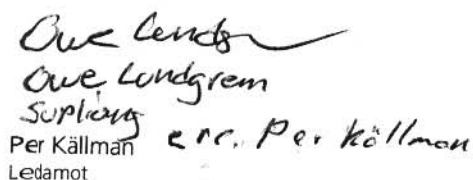 Owe Lundgren
Owe Lundgrem
Supliang
Per Källman ers. Per Källman
Ledamot